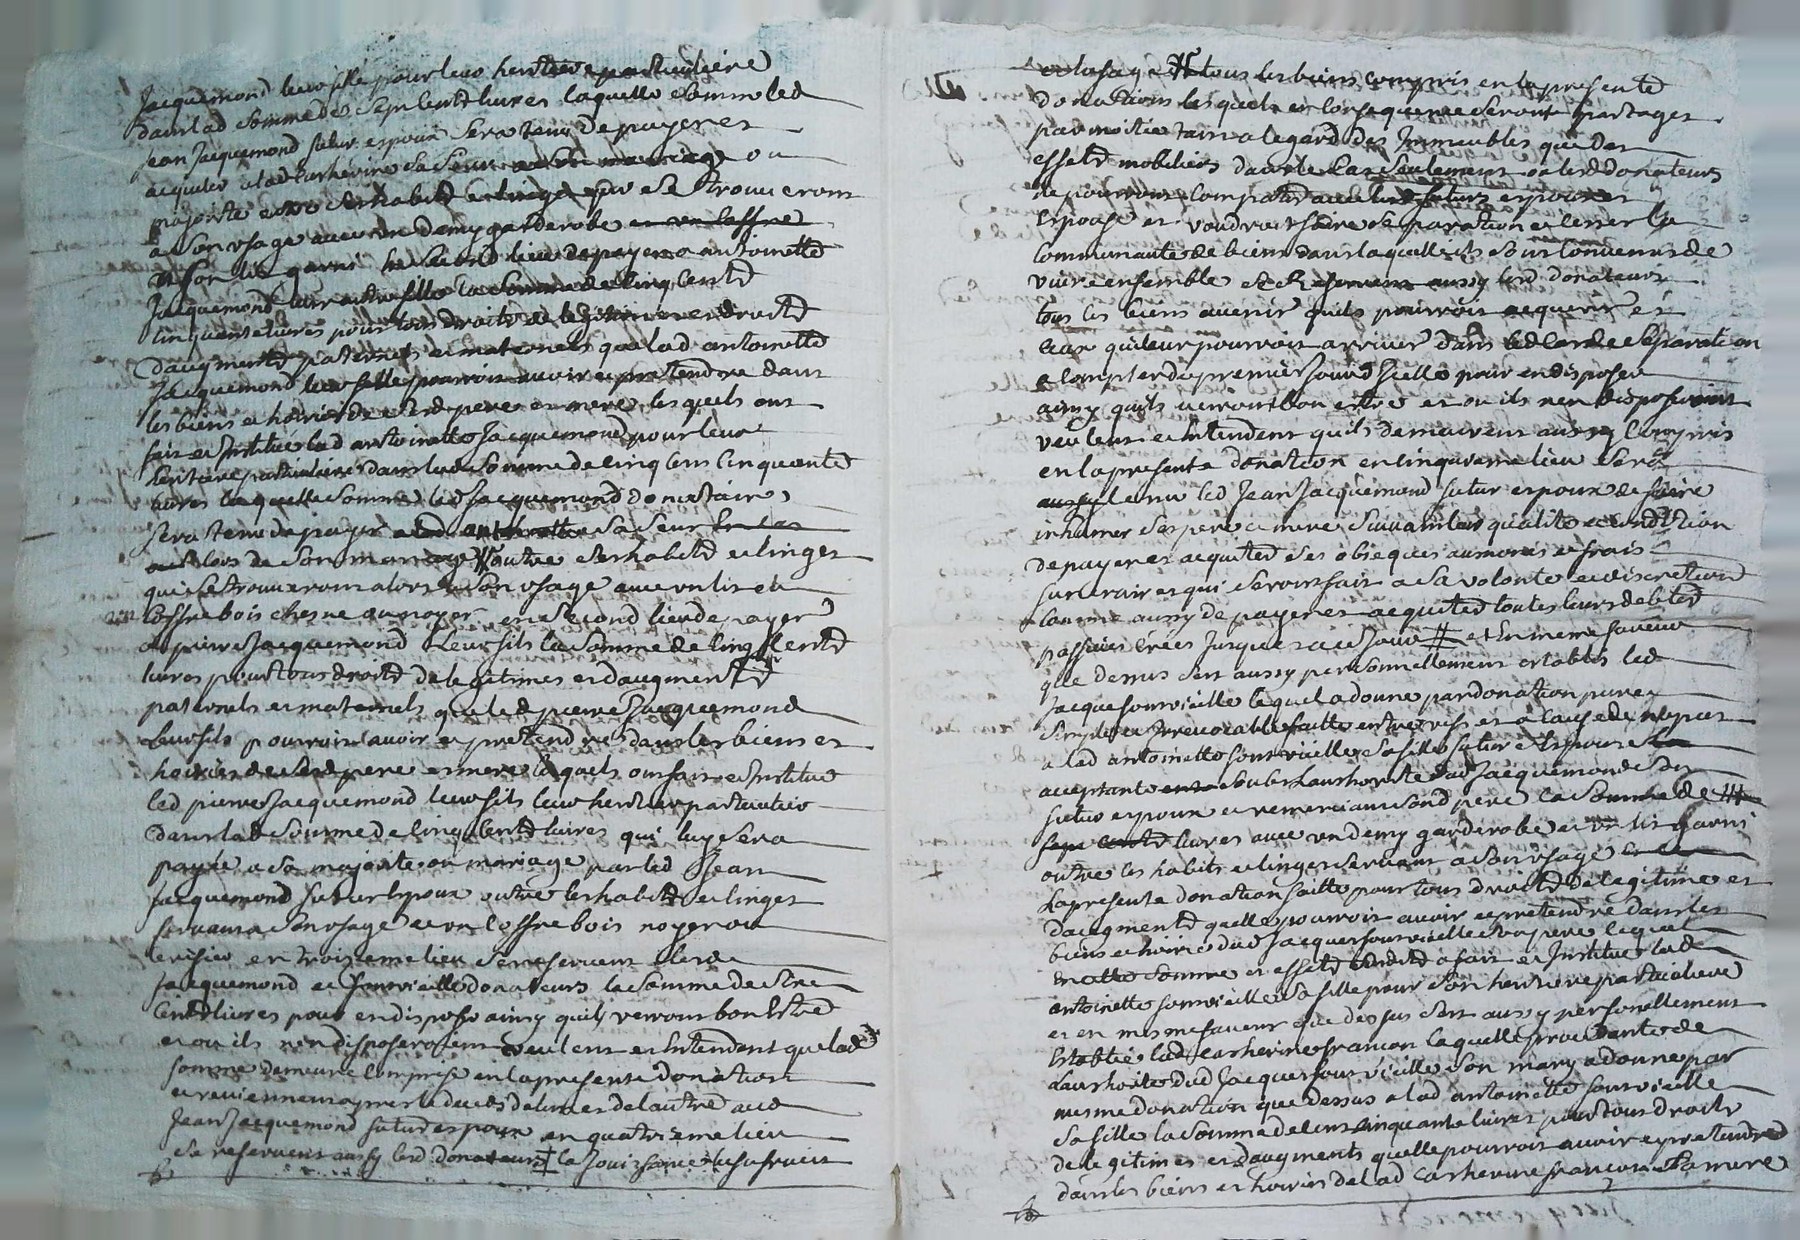 Jacquemond leur fille pour leur heritiere particuliere
dans lad somme de sept cents livres laquelle somme led
jean Jacquemond futur espoux sera tenu de payer et
acquiter a lad Catherine sa seur a son mariage ou
majorite outre ses habits et linge qui se trouveront
a son usage avec un demy garderobe
garni en second lieu de payer a antoinette
Jacquemond leur autre fille la somme de cinq cents
cinquante livres pour tous droits de legitimes et droits
daugments paternels et maternels que lad antoinette
Jacquemond leur fille pourroit avoir et pretendre dans
les biens et hoiries de sesd pere et mere lesquels ont
fait et Institue lad antoinette Jacquemond pour leur
heritiere particuliere dans lad somme de cinq cens cinquante
livres laquelle somme led Jacquemond donataire
sera tenu de payer a lad antoinette sa seur
lors de son mariage outre ses habits et linges
qui se trouveront alors a son usage avec un lit et
coffre bois chesne ou noyer en second lieu de payer
a pierre Jacquemond Leur fils la somme de cinq cents
livres pour tous droits de legitimes et daugments
paternels et maternels que led pierre Jacquemond
Leur fils pourroit avoir et pretendre dans les biens et
hoiries de sesd pere et mere lesquels ont fait et Institue
led pierre Jacquemond leur fils leur heritier particulier
dans lad somme de cinq cents livres qui luy sera
payée a sa majorite ou mariage par led Jean
Jacquemond futur Espoux outre les habits et linges
servant a son usage et un coffre bois noyer ou
cerisier en troizieme lieu se reservent lesd
Jacquemond et Fourvieille donateurs la somme de
Cents livres pour en disposer ainsy quils verront bon Estre
et ou ils nen disposeroient veulent et Entendent que lad
somme demeure comprise en la presente donation
et revienne apres le deces de lun et de lautre aud
Jean Jacquemond futur espoux en quatrieme lieu
se reservent aussy lesd donateurs la Jouissance et usufruit
tous les biens compris en la presente
donation lesquels en consequence seront partages
par moitie tant a legard des Immeubles que des
effets mobiliers dans le Cas seulement ou lesd donateurs
ne pourront compatir avec lesd futurs espoux et
Espouse et voudront faire separation et cesser la
communaute de biens dans laquelle ils sont convenus de
vivre ensemble se Reservent aussy lesd donateurs
tous les biens avenir quils pourroit acquerir et
ceux qui leur pourroit arriver dans led Cas de separation
a compter du premier jour dicelle pour en disposer
ainsy quils verront bon estre et ou ils nen disposeroient
veulent et Entendent quils demeurent aussy compris
en la presente donation en cinquieme lieu sera
aussy tenu led Jean Jacquemond futur espoux de faire
inhumer ses pere et mere suivant leur qualite et condition
de payer et acquiter ses obseques aumones et frais
funeraires qui seront fait a sa volonte et discretion
comme aussy de payer et acquiter toutes leurs debtes
passives crées Jusques a ce Jour et En meme faveur
que dessus sest aussy personnellement establis led
Jacque fourvieille lequel a donne par donation pure
simple et Irrevocable faitte entre vifs et a cause de nopces
a lad antoinette fourvieille sa fille future Espouse
acceptante sous Lauthorite dud Jacquemond son
futur espoux et remerciant sond pere la somme de
livres avec un demy garderobe et un lit garni
outre les habits et linges servant a son usage
La presente donation faitte pour tous droits de legitime et
daugments quelle pourroit avoir et pretendre dans les
biens et hoirie dud Jacques fourvieille son pere lequel
en cette somme et effets a fait et Institue lad
antoinette fourvieille sa fille pour son heritiere particuliere
et en mesme faveur que dessus sest aussy personellement
Establie lad Catherine francon laquelle procedante de
Lauthorite dud Jacques fourvieille son mary a donne par
mesme donation que dessus a lad antoinette fourvieille
sa fille la somme de cent cinquante livres pour tous droits
de legitimes et daugments quelle pourroit avoir et pretendre
dans les biens et hoiries de lad Catherine francon sa mere